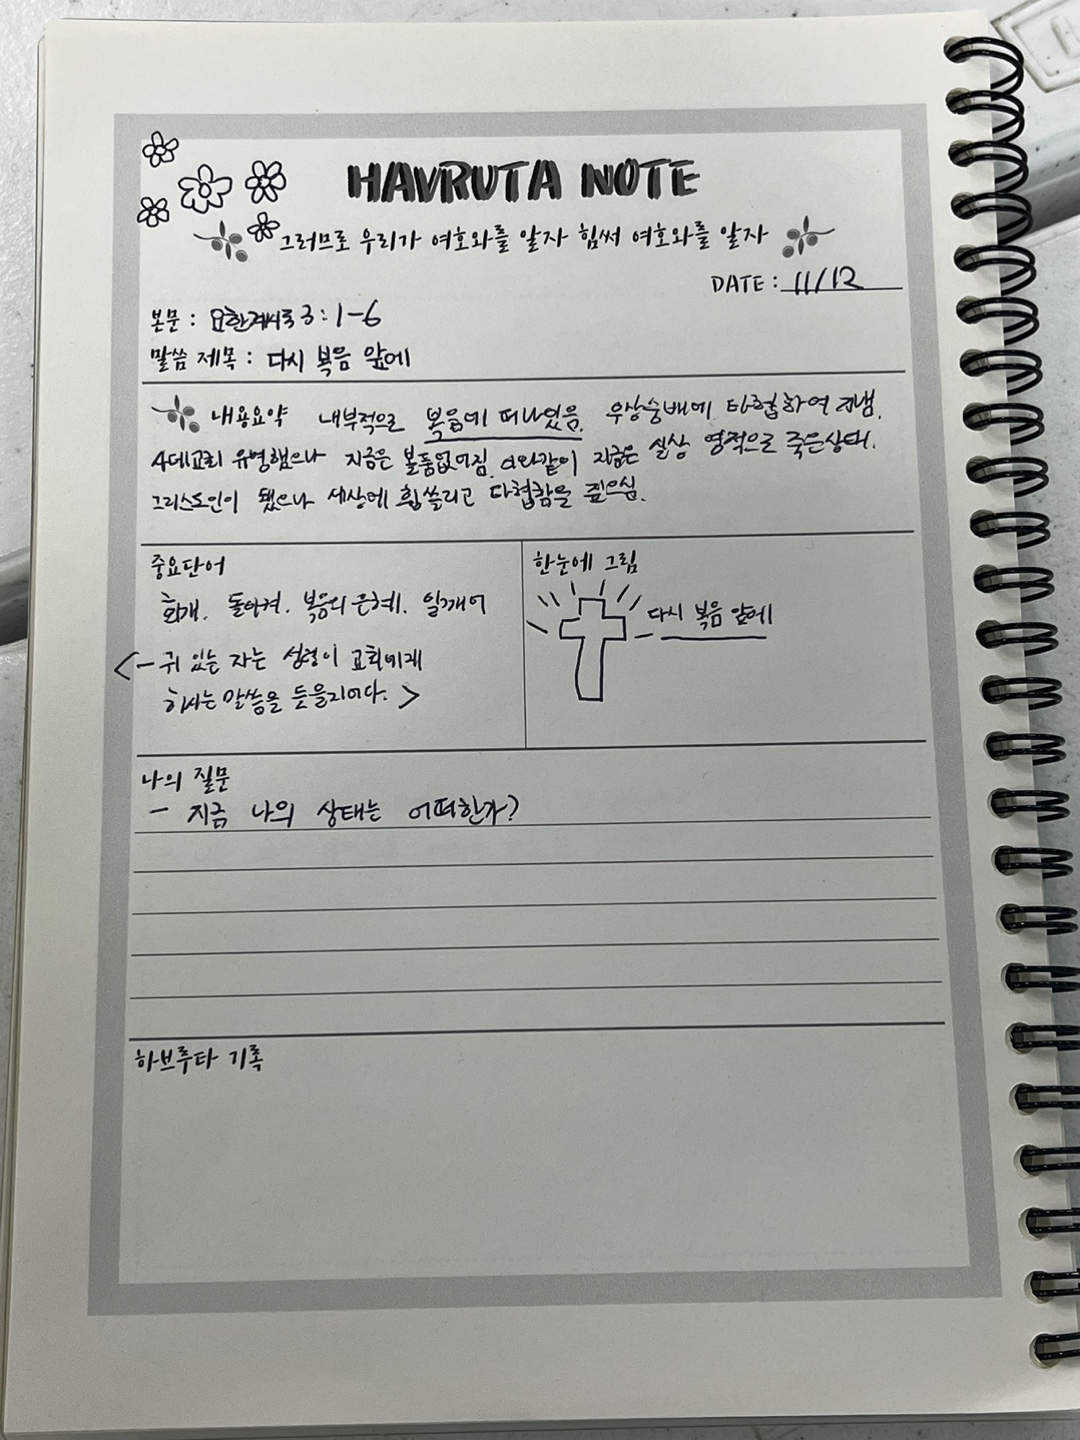 HAVRUTA NOTE
그러므로 우리가 여호와를 알자 힘써 여호와를 알자
DATE : 11/12
본문 : 요한계시록 3 : 1-6
말씀 제목 : 다시 복음 앞에
내용요약 내부적으로 복음에 떠나있음. 우상숭배에 타협하여 지냄.
4대교회 유명했으나 지금은 볼품없어짐. 이와같이 지금은 실상 영적으로 죽은상태.
그리스도인이 됐으나 세상에 휩쓸리고 타협함을 짚으심.
중요단어
회개. 돌이켜. 복음의 은혜. 일깨어
<- 귀 있는 자는 성령이 교회에게
하시는 말씀을 듣을지어다. >
한눈에 그림
다시 복음 앞에
나의 질문
- 지금 나의 상태는 어떠한가?
하브루타 기록